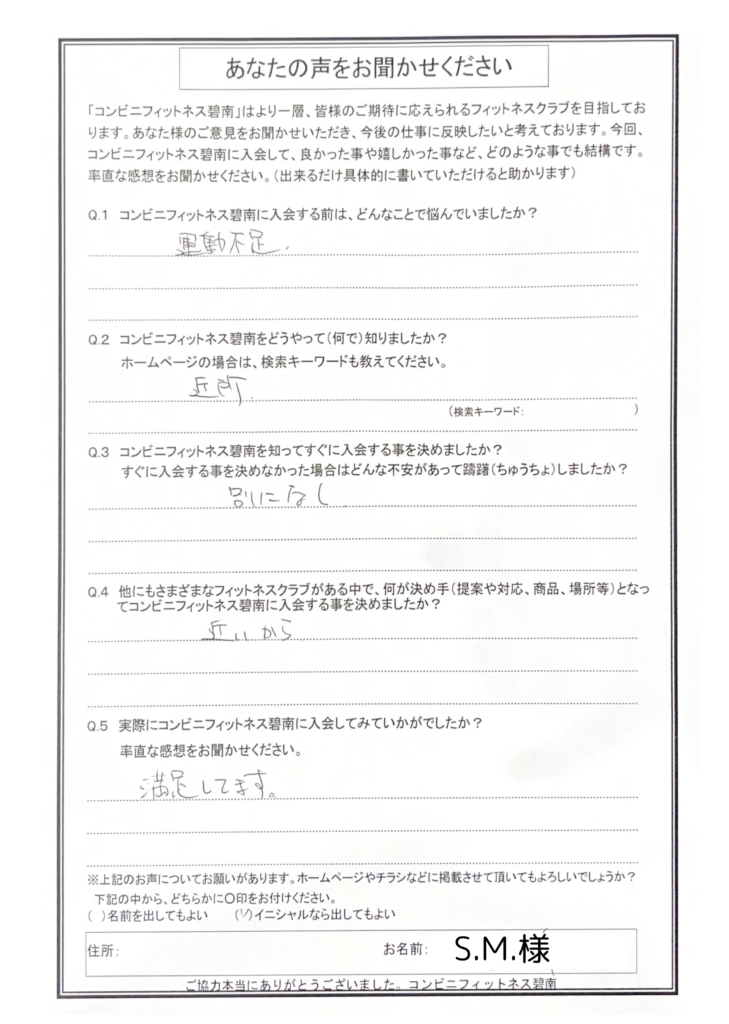 あなたの声をお聞かせください
「コンビニフィットネス碧南」はより一層、皆様のご期待に応えられるフィットネスクラブを目指してお
ります。あなた様のご意見をお聞かせいただき、今後の仕事に反映したいと考えております。今回、
コンビニフィットネス碧南に入会して、良かった事や嬉しかった事など、どのような事でも結構です。
率直な感想をお聞かせください。(出来るだけ具体的に書いていただけると助かります)
Q.1 コンビニフィットネス碧南に入会する前は、どんなことで悩んでいましたか?
運動不足.
Q.2 コンビニフィットネス碧南をどうやって(何で)知りましたか?
ホームページの場合は、検索キーワードも教えてください。
近所.
(検索キーワード: )
Q.3 コンビニフィットネス碧南を知ってすぐに入会する事を決めましたか?
すぐに入会する事を決めなかった場合はどんな不安があって躊躇(ちゅうちょ)しましたか?
別になし
Q.4 他にもさまざまなフィットネスクラブがある中で、何が決め手(提案や対応、商品、場所等)となっ
てコンビニフィットネス碧南に入会する事を決めましたか?
近いから
Q.5 実際にコンビニフィットネス碧南に入会してみていかがでしたか?
率直な感想をお聞かせください。
満足してます。
※上記のお声についてお願いがあります。ホームページやチラシなどに掲載させて頂いてもよろしいでしょうか?
下記の中から、どちらかに〇印をお付けください。
( )名前を出してもよい (レ)イニシャルなら出してもよい
住所: お名前: S.M.様
ご協力本当にありがとうございました。コンビニフィットネス碧南